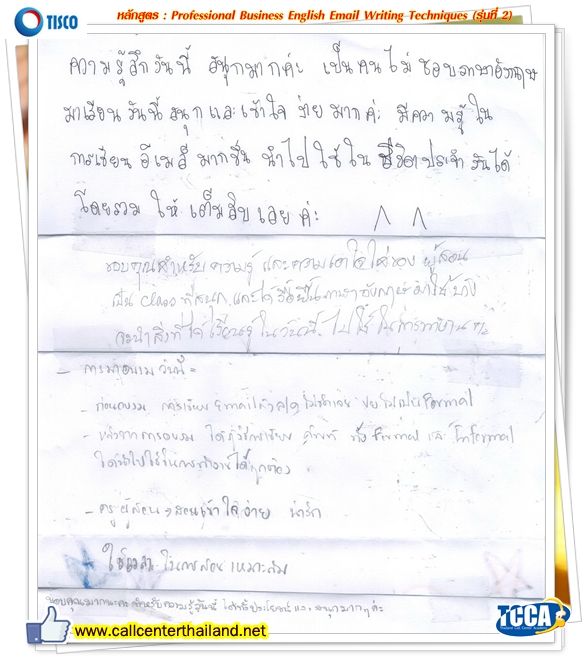 TISCO
หลักสูตร : Professional Business English Email Writing Techniques (รุ่นที่ 2)
ความรู้สึกวันนี้ สนุกมากค่ะ เป็นคนไม่ชอบภาษาอังกฤษ
มาเรียนวันนี้สนุกและเข้าใจง่ายมากค่ะ มีความรู้ใน
การเขียนอีเมล์มากขึ้น นำไปใช้ในชีวิตประจำวันได้
โดยรวมให้เต็มสิบเลยค่ะ ^ ^
ขอบคุณสำหรับความรู้ และความเอาใจใส่ของผู้สอน
เป็น class ที่สนุก และได้รื้อฟื้นภาษาอังกฤษ
จะนำสิ่งที่ได้เรียนรู้ในวันนี้ไปใช้ในการทำงาน
- การมาอบรมวันนี้ =
- ก่อนอบรม การเขียน Email Formal
- หลังจากการอบรม ได้รู้วิธีการเขียน ศัพท์ ทั้ง Formal และ Informal
ได้นำไปใช้ในการทำงานได้ถูกต้อง
- ครูผู้สอน → สอนเข้าใจง่าย น่ารัก
ใช้เวลาในการสอนเหมาะสม
ขอบคุณมากนะคะ สำหรับความรู้วันนี้ ได้รับประโยชน์และสนุกมากๆค่ะ
www.callcenterthailand.net
TCCA